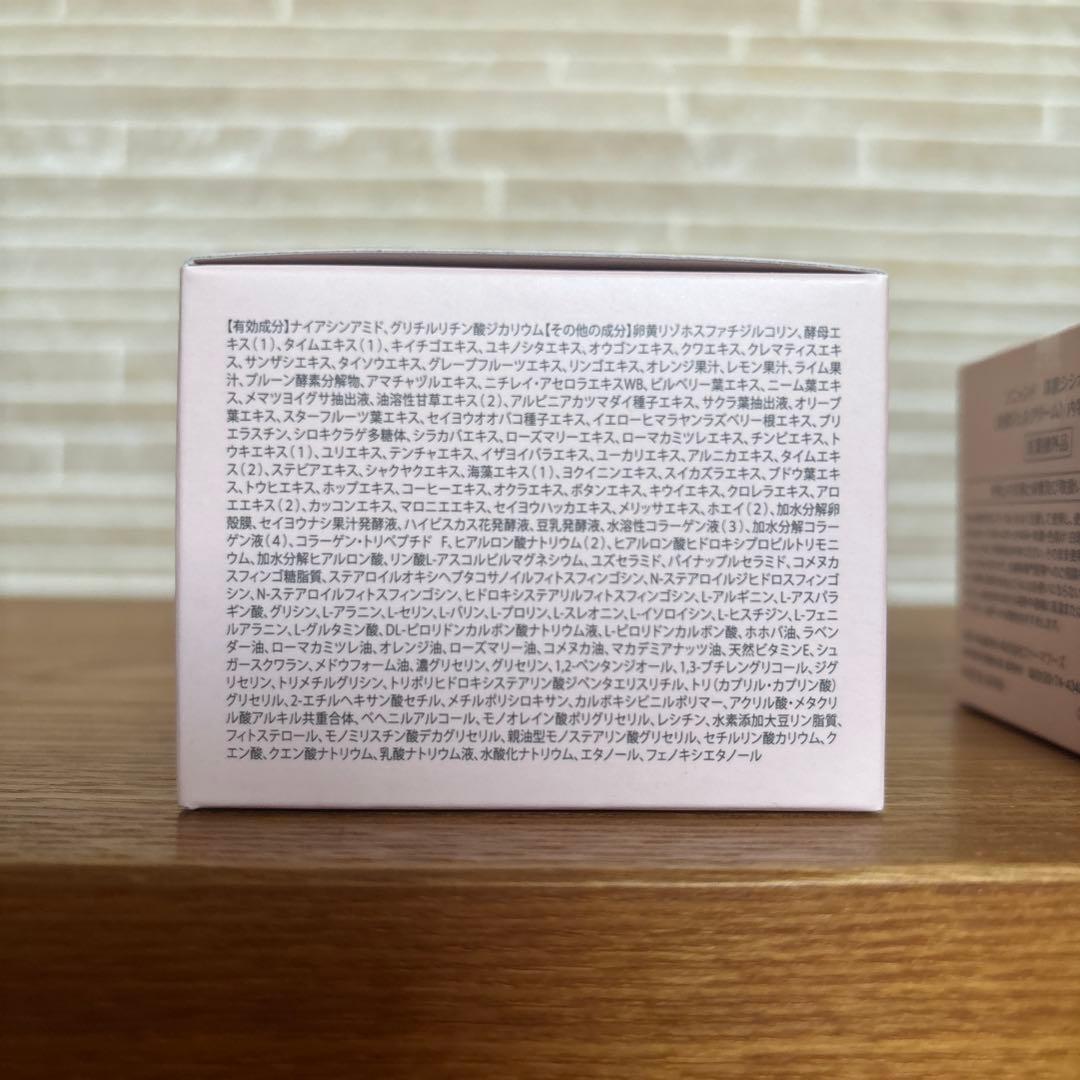 【有効成分】ナイアシンアミド、グリチルリチン酸ジカリウム【その他の成分】卵黄リゾホスファチジルコリン、酵母エ
キス(1)、タイムエキス(1)、キイチゴエキス、ユキノシタエキス、オウゴンエキス、クワエキス、クレマティスエキ
ス、サンザシエキス、タイソウエキス、グレープフルーツエキス、リンゴエキス、オレンジ果汁、レモン果汁、ライム果
汁、プルーン酵素分解物、アマチャヅルエキス、ニチレイ・アセロラエキスWB、ビルベリー葉エキス、ニーム葉エキ
ス、メマツヨイグサ抽出液、油溶性甘草エキス(2)、アルピニアカツマダイ種子エキス、サクラ葉抽出液、オリーブ
葉エキス、スターフルーツ葉エキス、セイヨウオオバコ種子エキス、イエローヒマラヤンラズベリー根エキス、プリ
エラスチン、シロキクラゲ多糖体、シラカバエキス、ローズマリーエキス、ローマカミツレエキス、チンピエキス、ト
ウキエキス(1)、ユリエキス、テンチャエキス、イザヨイバラエキス、ユーカリエキス、アルニカエキス、タイムエキス
(2)、ステビアエキス、シャクヤクエキス、海藻エキス(1)、ヨクイニンエキス、スイカズラエキス、ブドウ葉エキ
ス、トウヒエキス、ホップエキス、コーヒーエキス、オクラエキス、ボタンエキス、キウイエキス、クロレラエキス、アロ
エエキス(2)、カッコンエキス、マロニエエキス、セイヨウハッカエキス、メリッサエキス、ホエイ(2)、加水分解卵
殻膜、セイヨウナシ果汁発酵液、ハイビスカス花発酵液、豆乳発酵液、水溶性コラーゲン液(3)、加水分解コラー
ゲン液(4)、コラーゲン・トリペプチド F、ヒアルロン酸ナトリウム(2)、ヒアルロン酸ヒドロキシプロピルトリモニ
ウム、加水分解ヒアルロン酸、リン酸L-アスコルビルマグネシウム、ユズセラミド、パイナップルセラミド、コメヌカ
スフィンゴ糖脂質、ステアロイルオキシヘプタコサノイルフィトスフィンゴシン、N-ステアロイルジヒドロスフィンゴ
シン、N-ステアロイルフィトスフィンゴシン、ヒドロキシステアリルフィトスフィンゴシン、L-アルギニン、L-アスパラ
ギン酸、グリシン、L-アラニン、L-セリン、L-バリン、L-プロリン、L-スレオニン、L-イソロイシン、L-ヒスチジン、L-フェニ
ルアラニン、L-グルタミン酸、DL-ピロリドンカルボン酸ナトリウム液、L-ピロリドンカルボン酸、ホホバ油、ラベン
ダー油、ローマカミツレ油、オレンジ油、ローズマリー油、コメヌカ油、マカデミアナッツ油、天然ビタミンE、シュ
ガースクワラン、メドウフォーム油、濃グリセリン、グリセリン、1,2-ペンタンジオール、1,3-ブチレングリコール、ジグ
リセリン、トリメチルグリシン、トリポリヒドロキシステアリン酸ジペンタエリスリチル、トリ(カプリル・カプリン酸)
グリセリル、2-エチルヘキサン酸セチル、メチルポリシロキサン、カルボキシビニルポリマー、アクリル酸・メタクリ
ル酸アルキル共重合体、ベヘニルアルコール、モノオレイン酸ポリグリセリル、レシチン、水素添加大豆リン脂質、
フィトステロール、モノミリスチン酸デカグリセリル、親油型モノステアリン酸グリセリル、セチルリン酸カリウム、ク
エン酸、クエン酸ナトリウム、乳酸ナトリウム液、水酸化ナトリウム、エタノール、フェノキシエタノール
医薬部外品